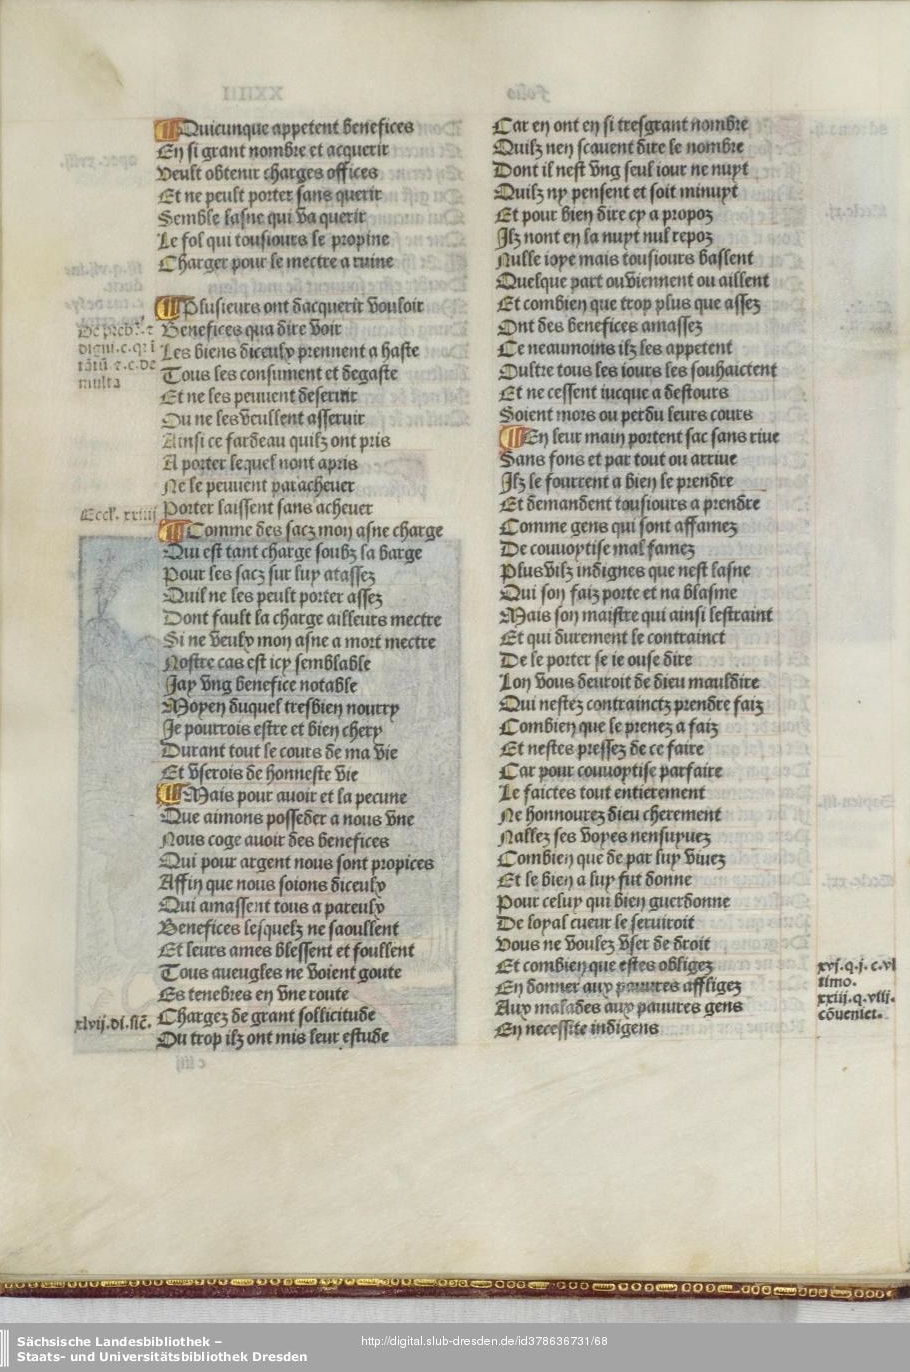 Quicunque appetent benefices
En si grant nombre et acquerir
Veult obtenir charges offices
Et ne peult porter sans querir
Semble lasne qui va querir
Le fol qui tousiours le propine
Charger pour le mectre a ruine
Plusieurs ont dacquerir vouloir
Benefices qua dire voir
Les biens diceulx prennent a haste
Tous les consument et degaste
Et ne les peuuent deseruir
Ou ne les veullent asseruir
Ainsi ce fardeau quilz ont pris
A porter lequel nont apris
Ne le peuuent paracheuer
Eccl. xxiiij
Porter laissent sans acheuer
Comme des sacz mon asne charge
Qui est tant charge soubz la barge
Pour les sacz sur luy atassez
Quil ne les peult porter assez
Dont fault la charge ailleurs mectre
Si ne veulx mon asne a mort mectre
Nostre cas est icy semblable
Jay vng benefice notable
Moyen duquel tresbien nourry
Je pourrois estre et bien chery
Durant tout le cours de ma vie
Et vserois de honneste vie
Mais pour auoir et la pecune
Que aimons posseder a nous vne
Nous coge auoir des benefices
Qui pour argent nous sont propices
Affin que nous soions diceulx
Qui amassent tous a pareulx
Benefices lesquelz ne saoullent
Et leurs ames blessent et foullent
Tous aueugles ne voient goute
Es tenebres en vne route
xlvij.di.sic̄.
Chargez de grant sollicitude
Ou trop ilz ont mis leur estude
Car en ont en si tresgrant nombre
Quilz nen scauent dire le nombre
Dont il nest vng seul iour ne nuyt
Quilz ny pensent et soit minuyt
Et pour bien dire cy a propoz
Jlz nont en la nuyt nul repoz
Nulle ioye mais tousiours baslent
Quelque part ou viennent ou aillent
Et combien que trop plus que assez
Ont des benefices amassez
Ce neaumoins ilz les appetent
Oultre tous les iours les souhaictent
Et ne cessent iucque a destours
Soient mors ou perdu leurs cours
En leur main portent sac sans riue
Sans fons et par tout ou arriue
Jlz le fourrent a bien le prendre
Et demandent tousiours a prendre
Comme gens qui sont affamez
De couuoytise mal famez
Plus vilz indignes que nest lasne
Qui son faiz porte et na blasme
Mais son maistre qui ainsi lestraint
Et qui durement le contrainct
De le porter se ie ouse dire
Lon vous deuroit de dieu mauldire
Qui nestez contrainctz prendre faiz
Combien que le prenez a faiz
Et nestes pressez de ce faire
Car pour couuoytise parfaire
Le faictes tout entierement
Ne honnourez dieu cherement
Nallez ses voyes nensuyuez
Combien que de par luy viuez
Et le bien a luy fut donne
Pour celuy qui bien guerdonne
De loyal cueur le seruiroit
Vous ne voulez vser de droit
Et combien que estes obligez
En donner aux pauures affligez
Aux malades aux pauures gens
En necessite indigens
xvj.q.j.c.vl
timo.
xxiij.q.viii.
cōueniet.
Sächsische Landesbibliothek –
Staats- und Universitätsbibliothek Dresden
http://digital.slub-dresden.de/id378636731/68